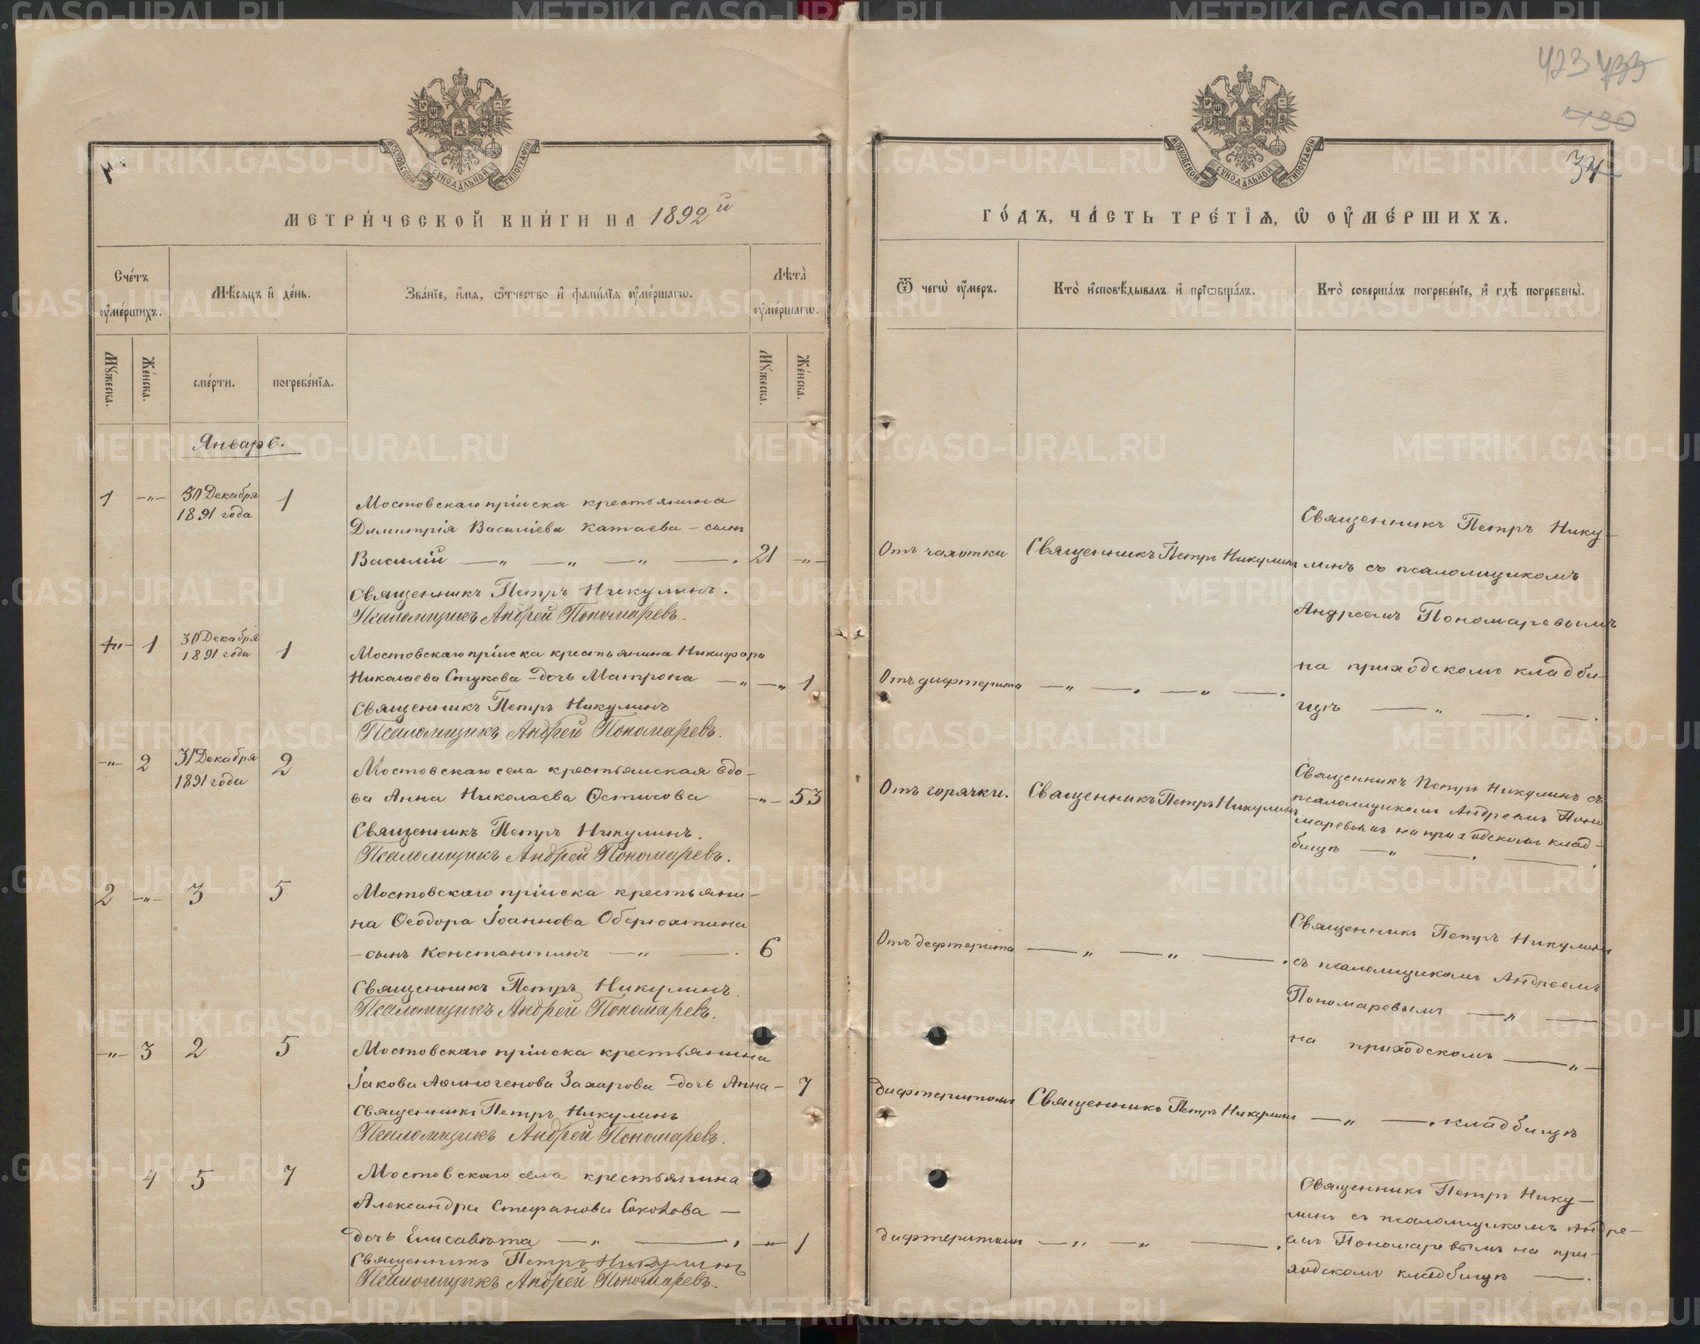 МЕТРИ́ЧЕСКОЙ КНИ́ГИ НА 1892 й
Счéтъ ᲂу҆мéршихъ.
Мѣ́сяцъ и҆ дéнь.
Звáнїе, и҆́мѧ, ѻ҆́тчество и҆ фамѝлїѧ ᲂу҆мéршагѡ.
Лѣта̀ ᲂу҆мéршагѡ.
Мꙋ́жеска.
Жéнска.
смéрти.
погребéнїѧ.
Мꙋ́жеска.
Жéнска.
Январь.
1 -"- 30 Декабря 1891 года 1
Мостовскаго прiиска крестьянина
Димитрiя Василiева Катаева - сынъ
Василiй — „ — „ — „ — . 21 -"-
Священникъ Петръ Никулинъ.
Псаломщикъ Андрей Пономаревъ.
-"- 1 30 Декабря 1891 года 1
Мостовскаго прiиска крестьянина Никифора
Николаева Стукова - дочь Матрона — „ — „ 1
Священникъ Петръ Никулинъ
Псаломщикъ Андрей Пономаревъ.
-"- 2 31 Декабря 1891 года 2
Мостовскаго села крестьянская вдо-
ва Анна Николаева -"- 53
Священникъ Петръ Никулинъ.
Псаломщикъ Андрей Пономаревъ.
2 -"- 3 5
Мостовскаго прiиска крестьяни-
на Ѳеодора Iоаннова Оберюхтина
- сынъ Константинъ — „ — . 6
Священникъ Петръ Никулинъ.
Псаломщикъ Андрей Пономаревъ.
-"- 3 2 5
Мостовскаго прiиска крестьянина
Iакова Аѳиногенова Захарова - дочь Анна - 7
Священникъ Петръ Никулинъ
Псаломщикъ Андрей Пономаревъ.
4 5 7
Мостовскаго села крестьянина
Александра Стефанова Соколова —
дочь Елисавета — „ — , -"- 1
Священникъ Петръ Никулинъ
Псаломщикъ Андрей Пономаревъ.
423 433
430
34
ГО́ДЪ, ЧА́СТЬ ТРЕ́ТЇѦ, Ѡ҆ ОУ҆МЕ́РШИХЪ.
Ѿ чегѡ̀ ᲂу҆́меръ.
Кто̀ и҆сповѣ́дывалъ и҆ прїѡбщáлъ.
Кто̀ совершáлъ погребéнїе, и҆ гдѣ̀ погребены̀.
Отъ чахотки
Священникъ Петръ Никулинъ
Священникъ Петръ Нику-
линъ съ псаломщикомъ
Андреемъ Пономаревымъ
на приходскомъ кладби-
щѣ — „ — . — .
Отъ дифтерита — „ — „ — „ — .
Отъ горячки.
Священникъ Петръ Никулинъ
Священникъ Петръ Никулинъ съ
псаломщикомъ Андреемъ Поно
маревымъ на приходскомъ клад-
бищѣ — „ — . — .
Отъ дифтерита — „ — „ — .
Священникъ Петръ Никулинъ
съ псаломщикомъ Андреемъ
Пономаревымъ — „ —
на приходскомъ — „ —
дифтеритомъ
Священникъ Петръ Никулинъ
— „ — . кладбищѣ
дифтеритомъ — „ — „ — .
Священникъ Петръ Нику-
линъ съ псаломщикомъ Андре-
емъ Пономаревымъ на при-
ходскомъ кладбищѣ — .
METRIKI.GASO-URAL.RU